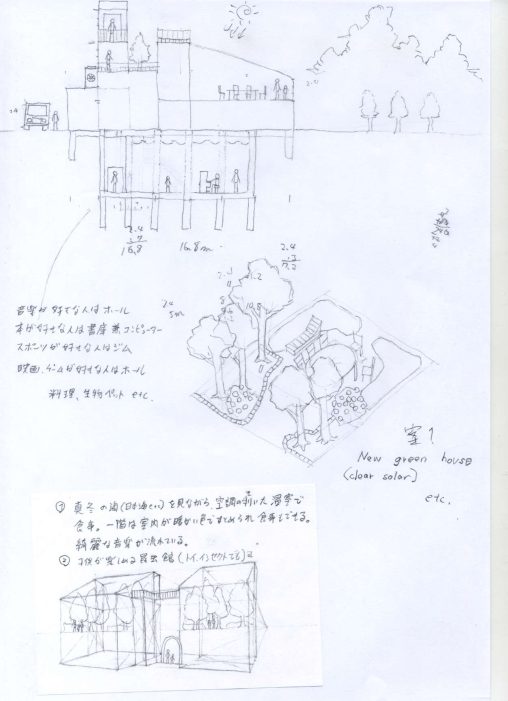 2.4
16.8
16.8m
2.4
7.2
5m
音楽が好きな人はホール
本が好きな人は書庫兼コンピューター
スポーツが好きな人はジム
映画、ゲームが好きな人はホール
料理、生物ペット etc.
室1
New green house
(clear solar)
etc.
① 真冬の海(日本海など)を見ながら、空調の利いた温室で
食事。一階は室内が暖かい色でまとめられ食事もできる。
綺麗な音楽が流れている。
② 子供が楽しめる昆虫館